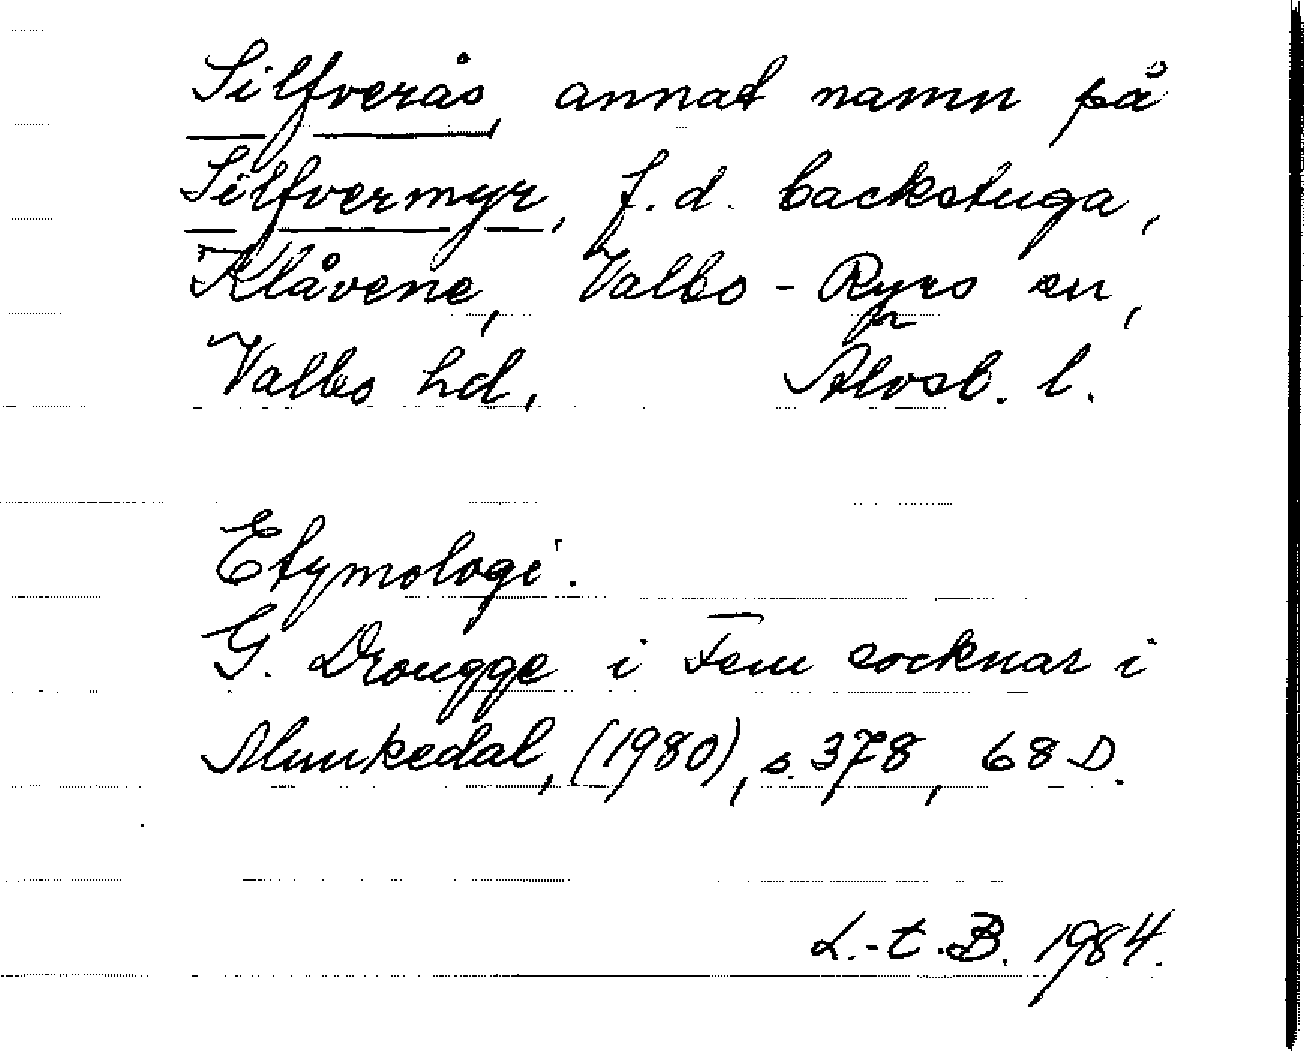 Silfverås, annat namn på
Silfvermyr, f.d. backstuga,
Klåvene, Valbo-Ryrs sn,
Valbo hd, Älvsb. l.
Etymologi.
G. Drougge i Fem socknar i
Munkedal, (1980), s. 378, 68 D.
L.-t. B. 1984.